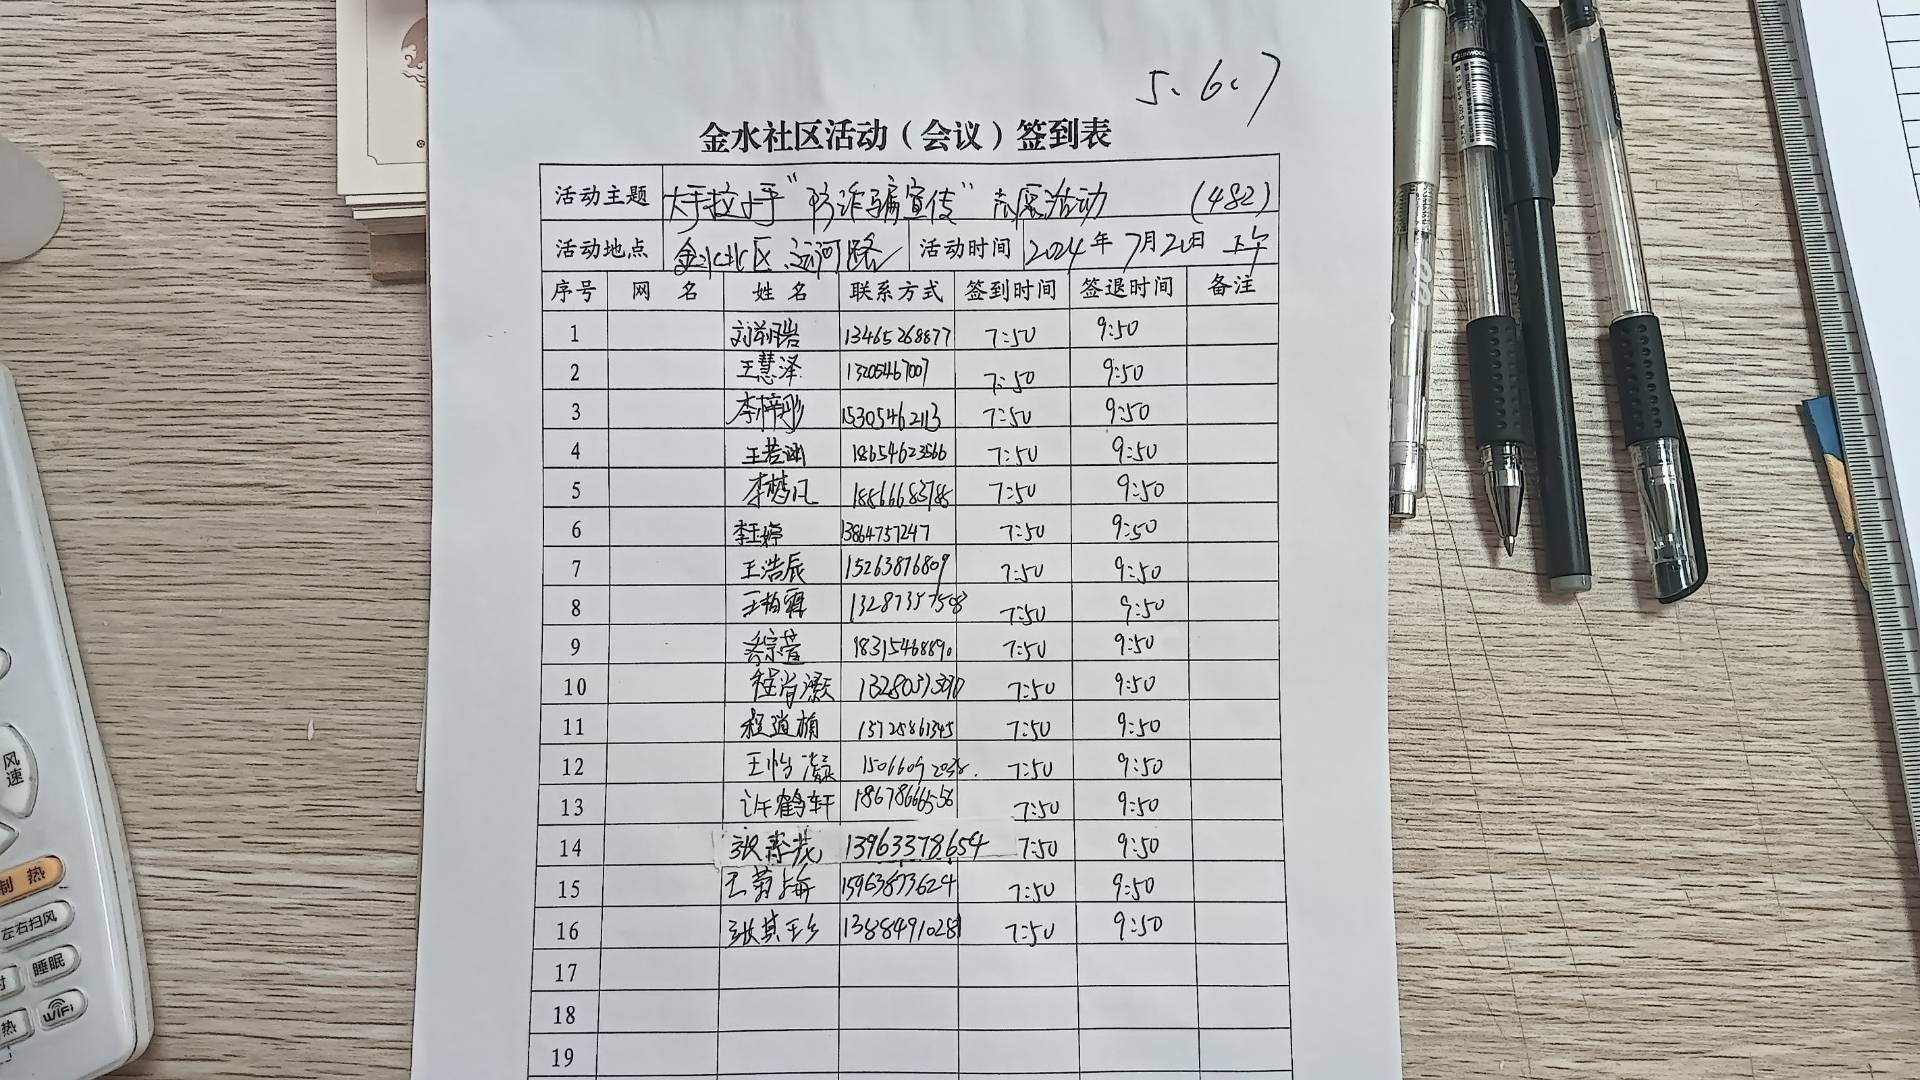 5、6、7
金水社区活动（会议）签到表
活动主题 大手拉小手“防诈骗宣传”志愿活动 (482)
活动地点 金水北区、运河路 活动时间 2024年7月20日
序号 网名 姓名 联系方式 签到时间 签退时间 备注
1 13465268877 7:50 9:50
2 王慧泽 13205467007 7:50 9:50
3 李梓彤 15305462113 7:50 9:50
4 王若渊 18654623566 7:50 9:50
5 李梦凡 18866683788 7:50 9:50
6 李玉婷 13864757247 7:50 9:50
7 王浩辰 15263876809 7:50 9:50
8 王柏霖 13287357503 7:50 9:50
9 18315468890 7:50 9:50
10 程肖灏 7:50 9:50
11 程道楠 7:50 9:50
12 王怡灏 7:50 9:50
13 许鹤轩 18678666556 7:50 9:50
14 张素花 13963378654 7:50 9:50
15 王菊梅 15963873624 7:50 9:50
16 张其玉 13884910281 7:50 9:50
17
18
19
风速
制热
左右扫风
睡眠
WiFi
热